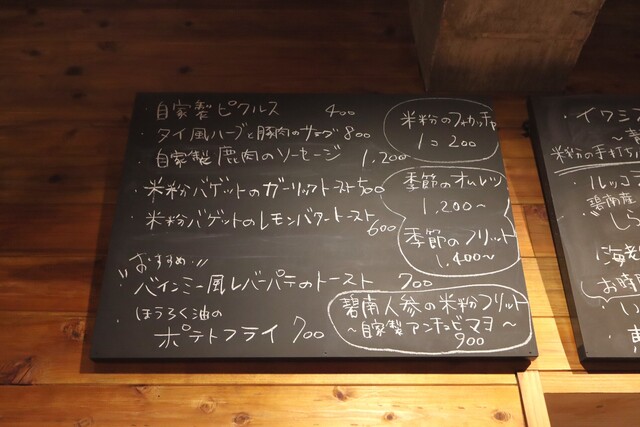 ・自家製ピクルス 400
・タイ風ハーブと豚肉のサラダ 800
・自家製鹿肉のソーセージ 1,200
・米粉バゲットのガーリックトースト 500
・米粉バゲットのレモンバタートースト 600
おすすめ!!
バインミー風レバーパテのトースト 700
・ほうろく油の
ポテトフライ 700
米粉のフォカッチャ
1コ 200
季節のオムレツ
1,200〜
季節のフリット
1,400〜
碧南人参の米粉フリット
〜自家製アンチョビマヨ〜
900
・イワシ
米粉の手打ち
・ルッコラ
碧南産
しら
(海老
お時
・い